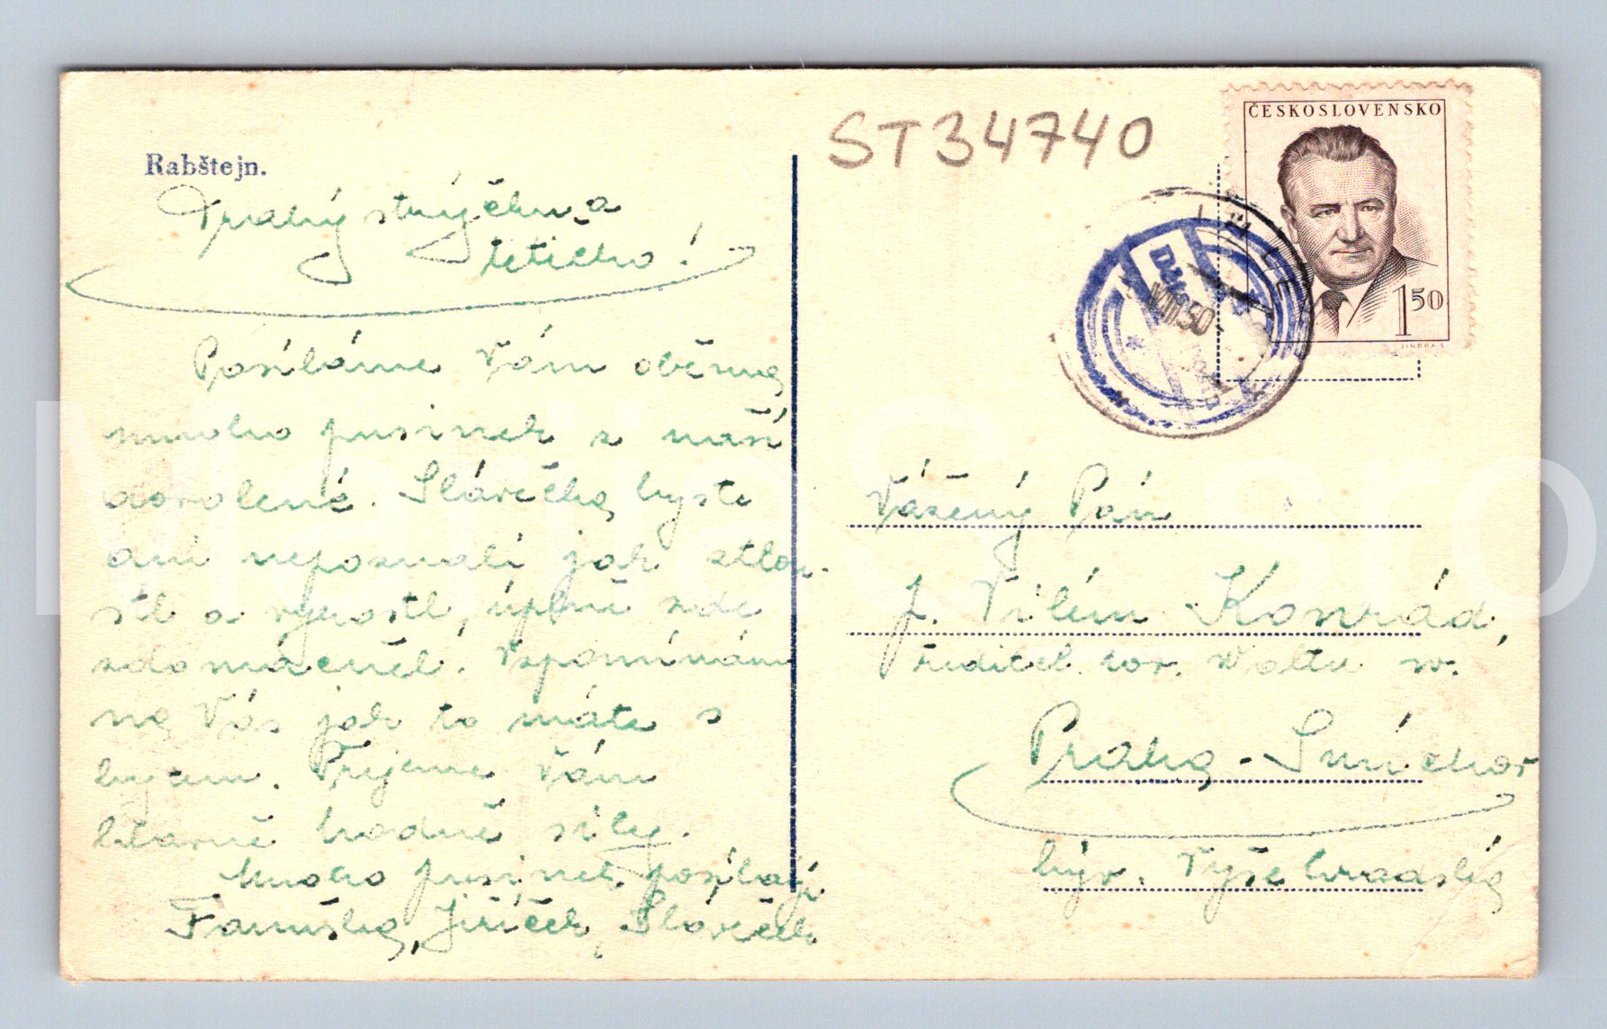 Rabštejn.
Drahý strýčku a
tetičko!
Posíláme Vám oběma
mnoho pusinek z naší
dovolené. Slávečka byste
ani nepoznali jak ztlou-
stl a vyrostl, úplně zde
zdomácněl. Vzpomínám
na Vás jak to máte s
bytem. Přejeme Vám
hlavně hodně síly.
Mnoho pusinek posílají
Fanuška, Jiříček, Sláveček
ST34740
ČESKOSLOVENSKO
150
JINDRA S.
Vážený Pán
J. Vilém Konrád,
ředitel tov. Waltr
Praha - Smíchov
býv. Vyšehradská